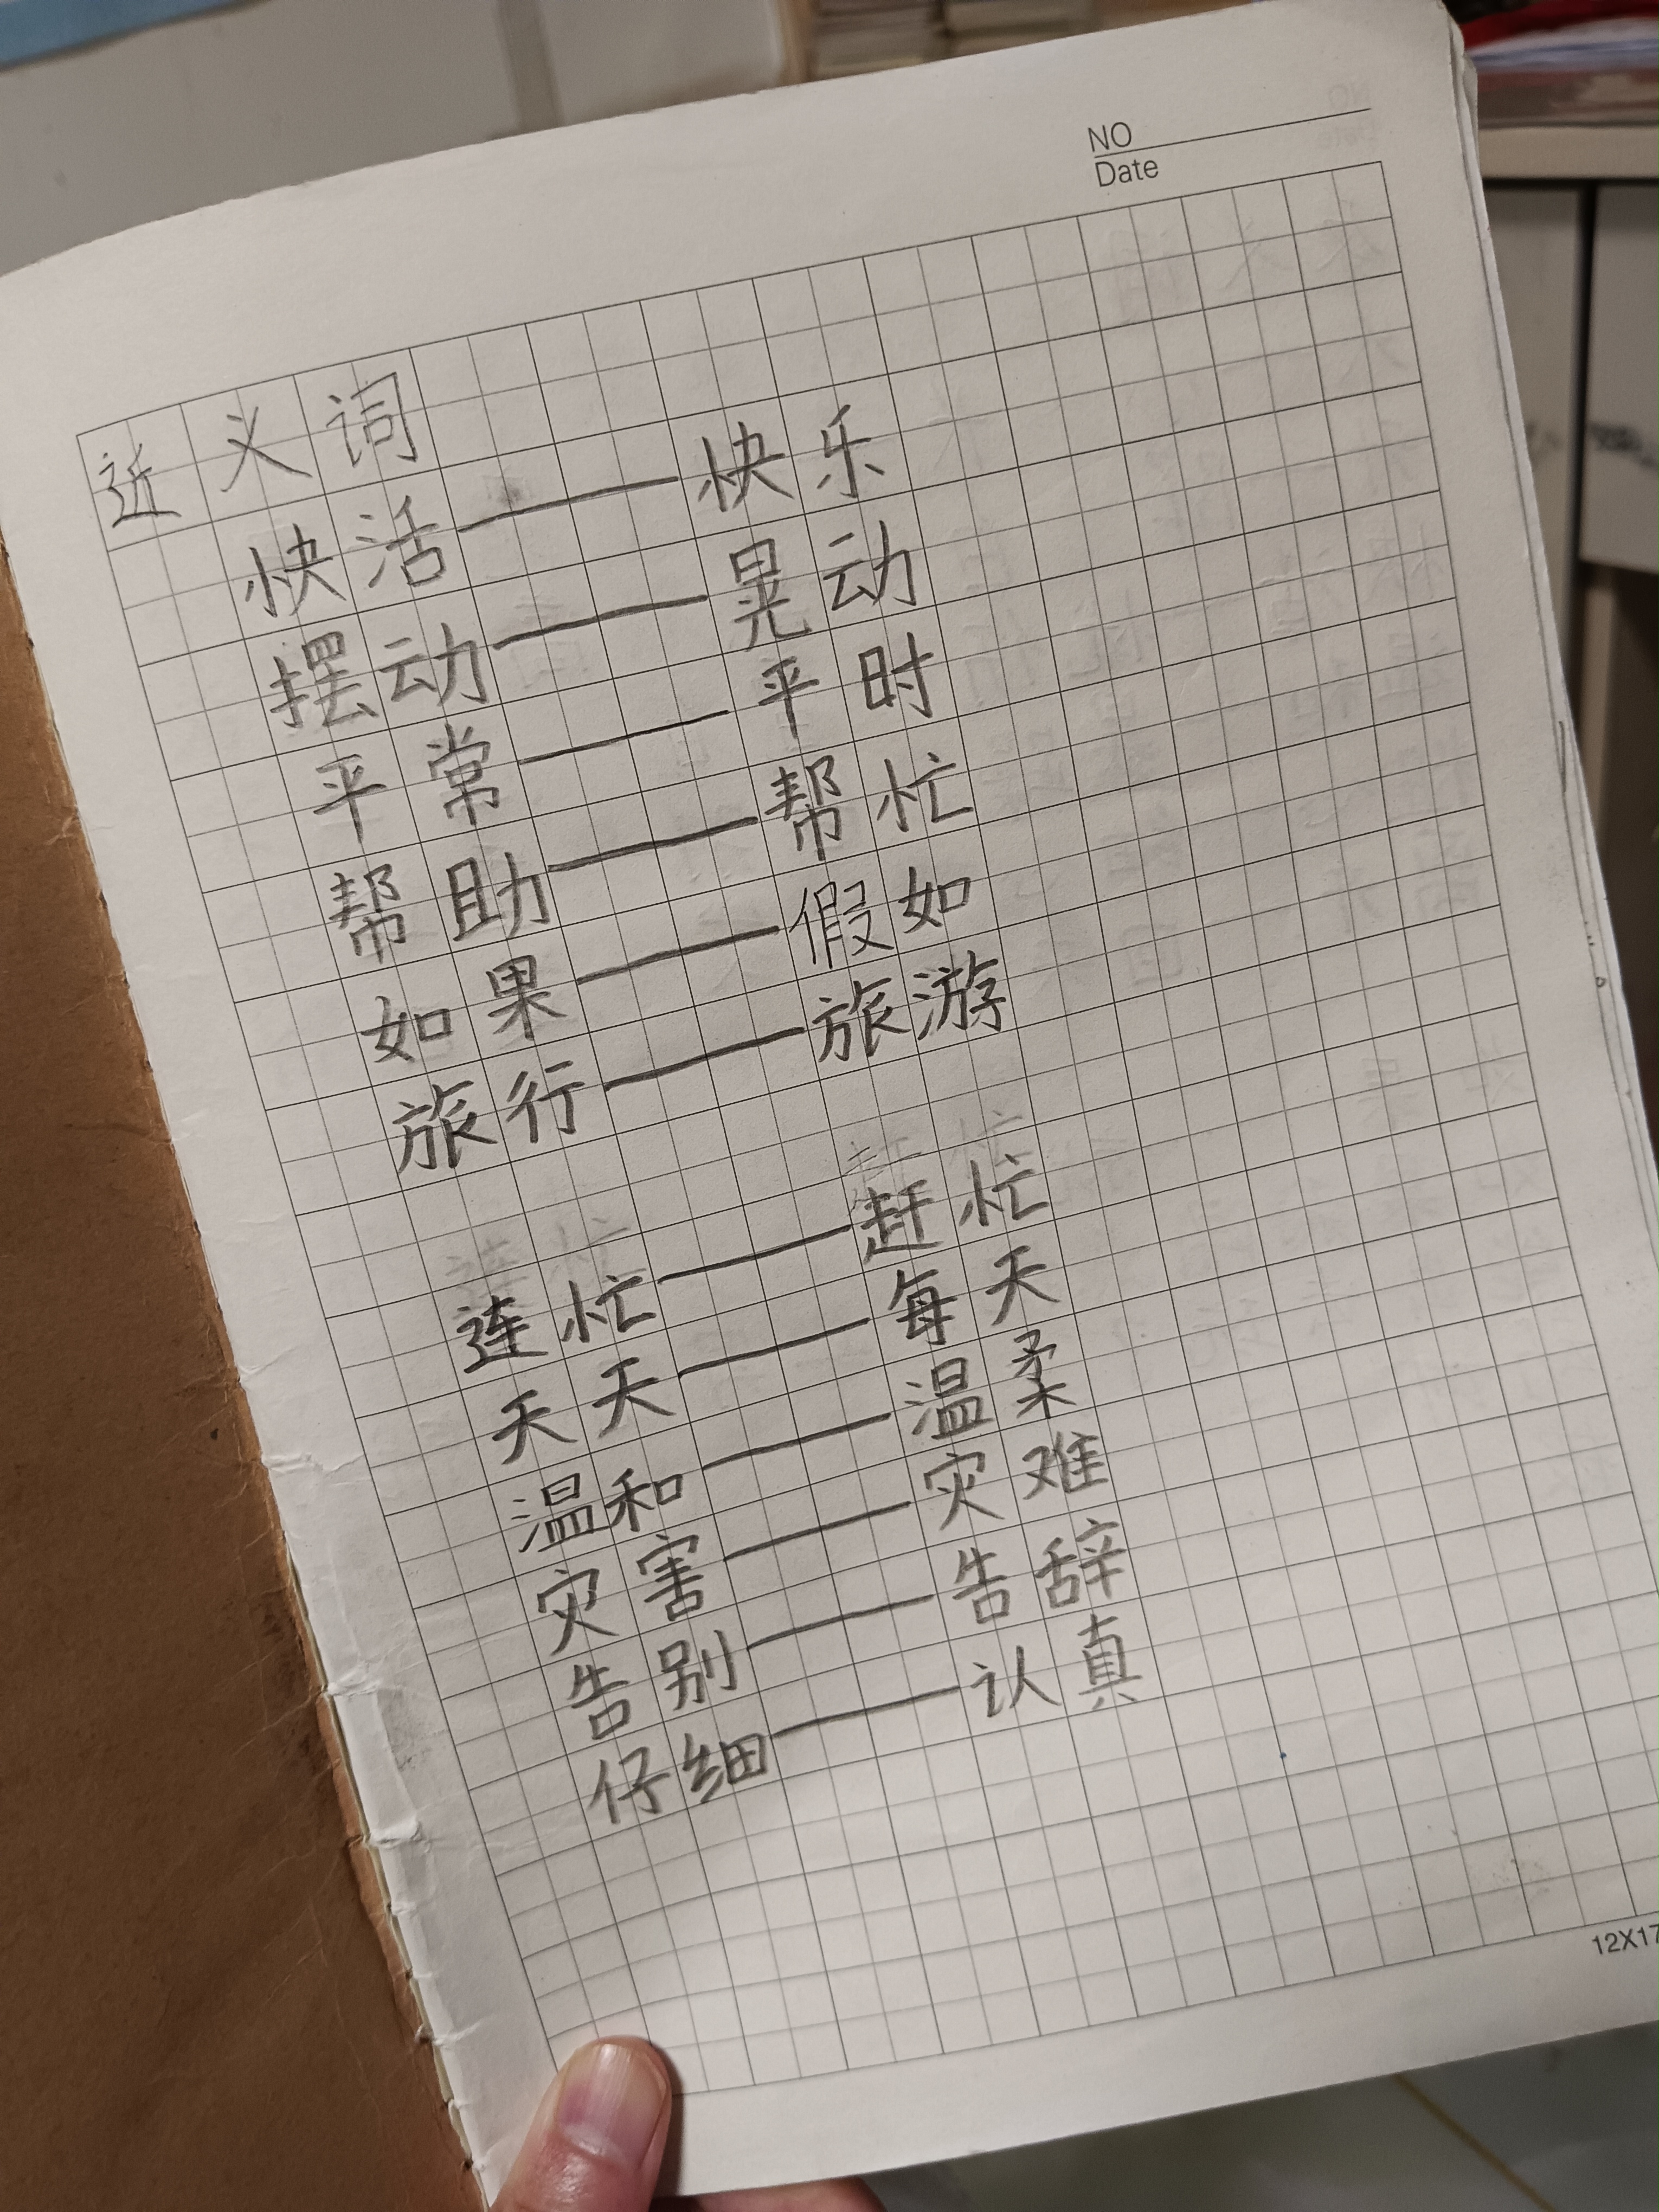 NO
Date
近义词
快活——快乐
摆动——晃动
平常——平时
帮助——帮忙
如果——假如
旅行——旅游
连忙——赶忙
天天——每天
温和——温柔
灾害——灾难
告别——告辞
仔细——认真
12X17